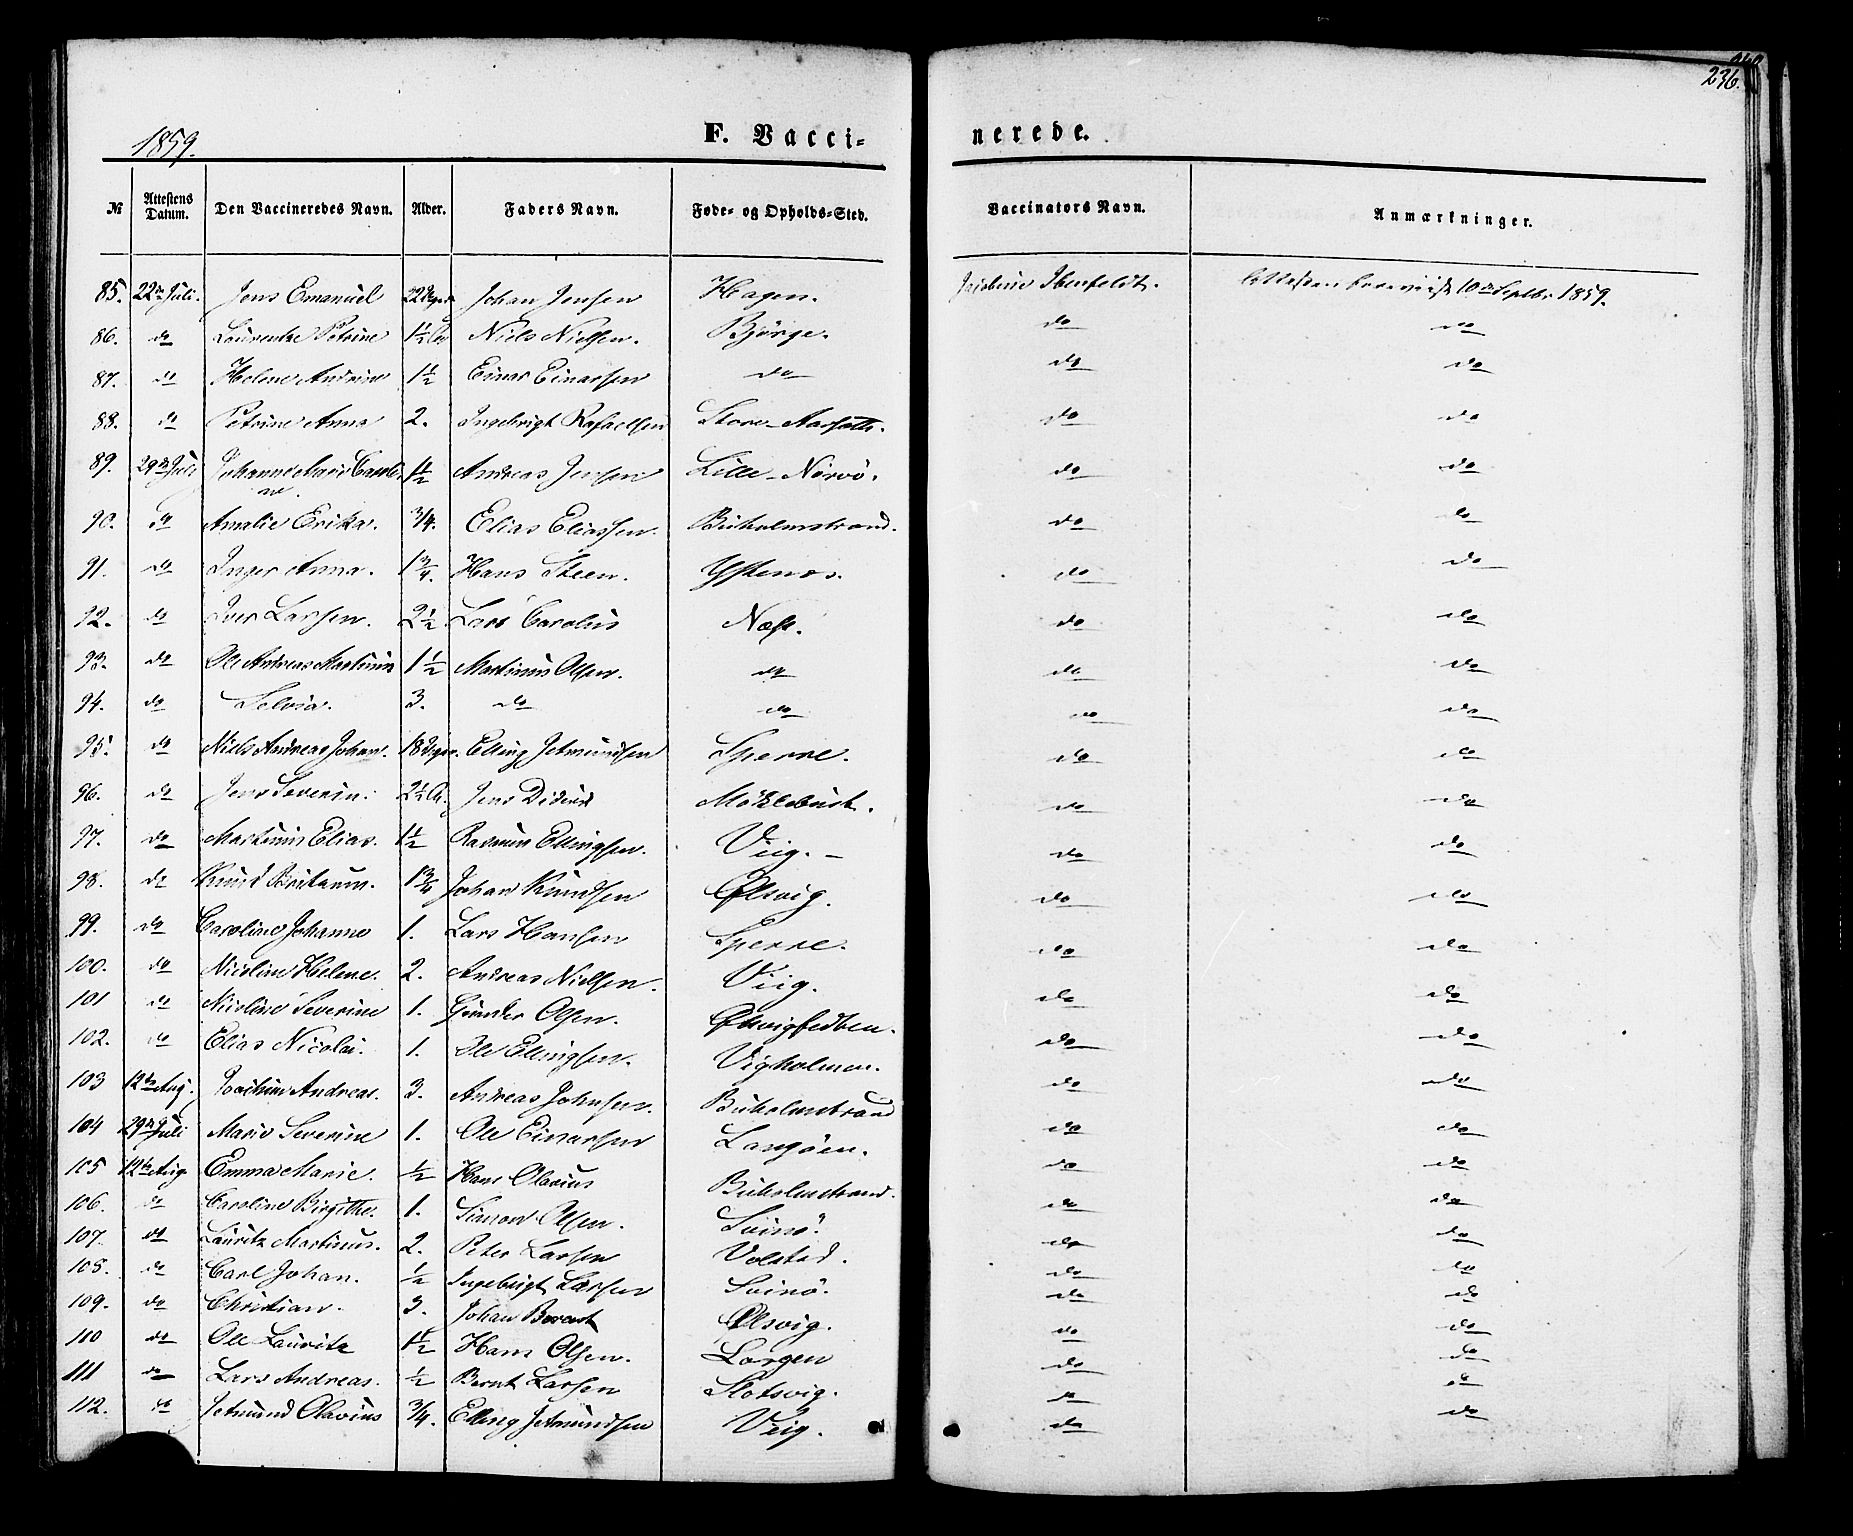 236.
1859.
F. Vacci-
nerede.
№ Attestens Datum. Den Vaccineredes Navn. Alder. Faders Navn. Føde- og Opholds-Sted. Vaccinators Navn. Anmærkninger.
85. 22de Juli. Jens Emanuel Johan Jensen Hagen. 10de Septbr 1859.
86. do Petrine 1½ Niels Nielsen. Bjørge. do do
87. do Helene Andrine 1½ Einar Einarsen do do do
88. do Petrine Anna 2. Ingebrigt Rafaelsen Store do do
89. 29de Juli Johanne Marie 1½ Andreas Jensen Lille-Nørvø. do do
90. do Amalie Erika. 3/4. Elias Eliassen. Buholmstrand. do do
91. do Inger Anna. 1 3/4. Hans Steen. Ystenæs. do do
92. do Iver Larsen. 2½ Lars Carolus Næss. do do
93. do Ole Andreas Martinus 1½ Martinus Olsen. do do do
94. do 3. do do do do
95. do Niels Andreas Johan. 18 Elling Jetmundsen Sperre. do do
96. do Jens Severin. 2½ Jens Didrik Møklebust. do do
97. do Martinus Elias. 1½ Rasmus Ellingsen. Viig. do do
98. do Knud 1 3/4 Johan Knudsen Ølsvig. do do
99. do Caroline Johanne 1. Lars Hansen Sperre. do do
100. do Nicoline Helene. 2. Andreas Nielsen. Viig. do do
101 do Nicoline Severine 1. Gunder Olsen. do do
102. do Elias Nicolai. 1. Ole Ellingsen. Vigholmen. do do
103 12te Aug. Joachim Andreas. 3. Andreas Johnsen. Buholmstrand do do
104 29de Juli Marie Severine 1. Ole Einarsen Langøen. do do
105 12te Aug Emma Marie. ½ Hans Olavius Buholmstrand. do do
106. do Caroline Birgithe. 1. Simon Olsen. Svinø. do do
107. do Lauritz Martinus. 2. Peter Larsen Volstad. do do
108. do Carl Johan. ½ Ingebrigt Larsen Svinø. do do
109. do Christian. 3. Johan Berent Ølsvig. do do
110 do Ole Lauritz 1½ Hans Olsen. Lorgen do do
111 do Lars Andreas. ½ Bernt Larsen Slotsvig. do do
112. do Jetmund Olavius 3/4. Elling Jetmundsen Viig. do do